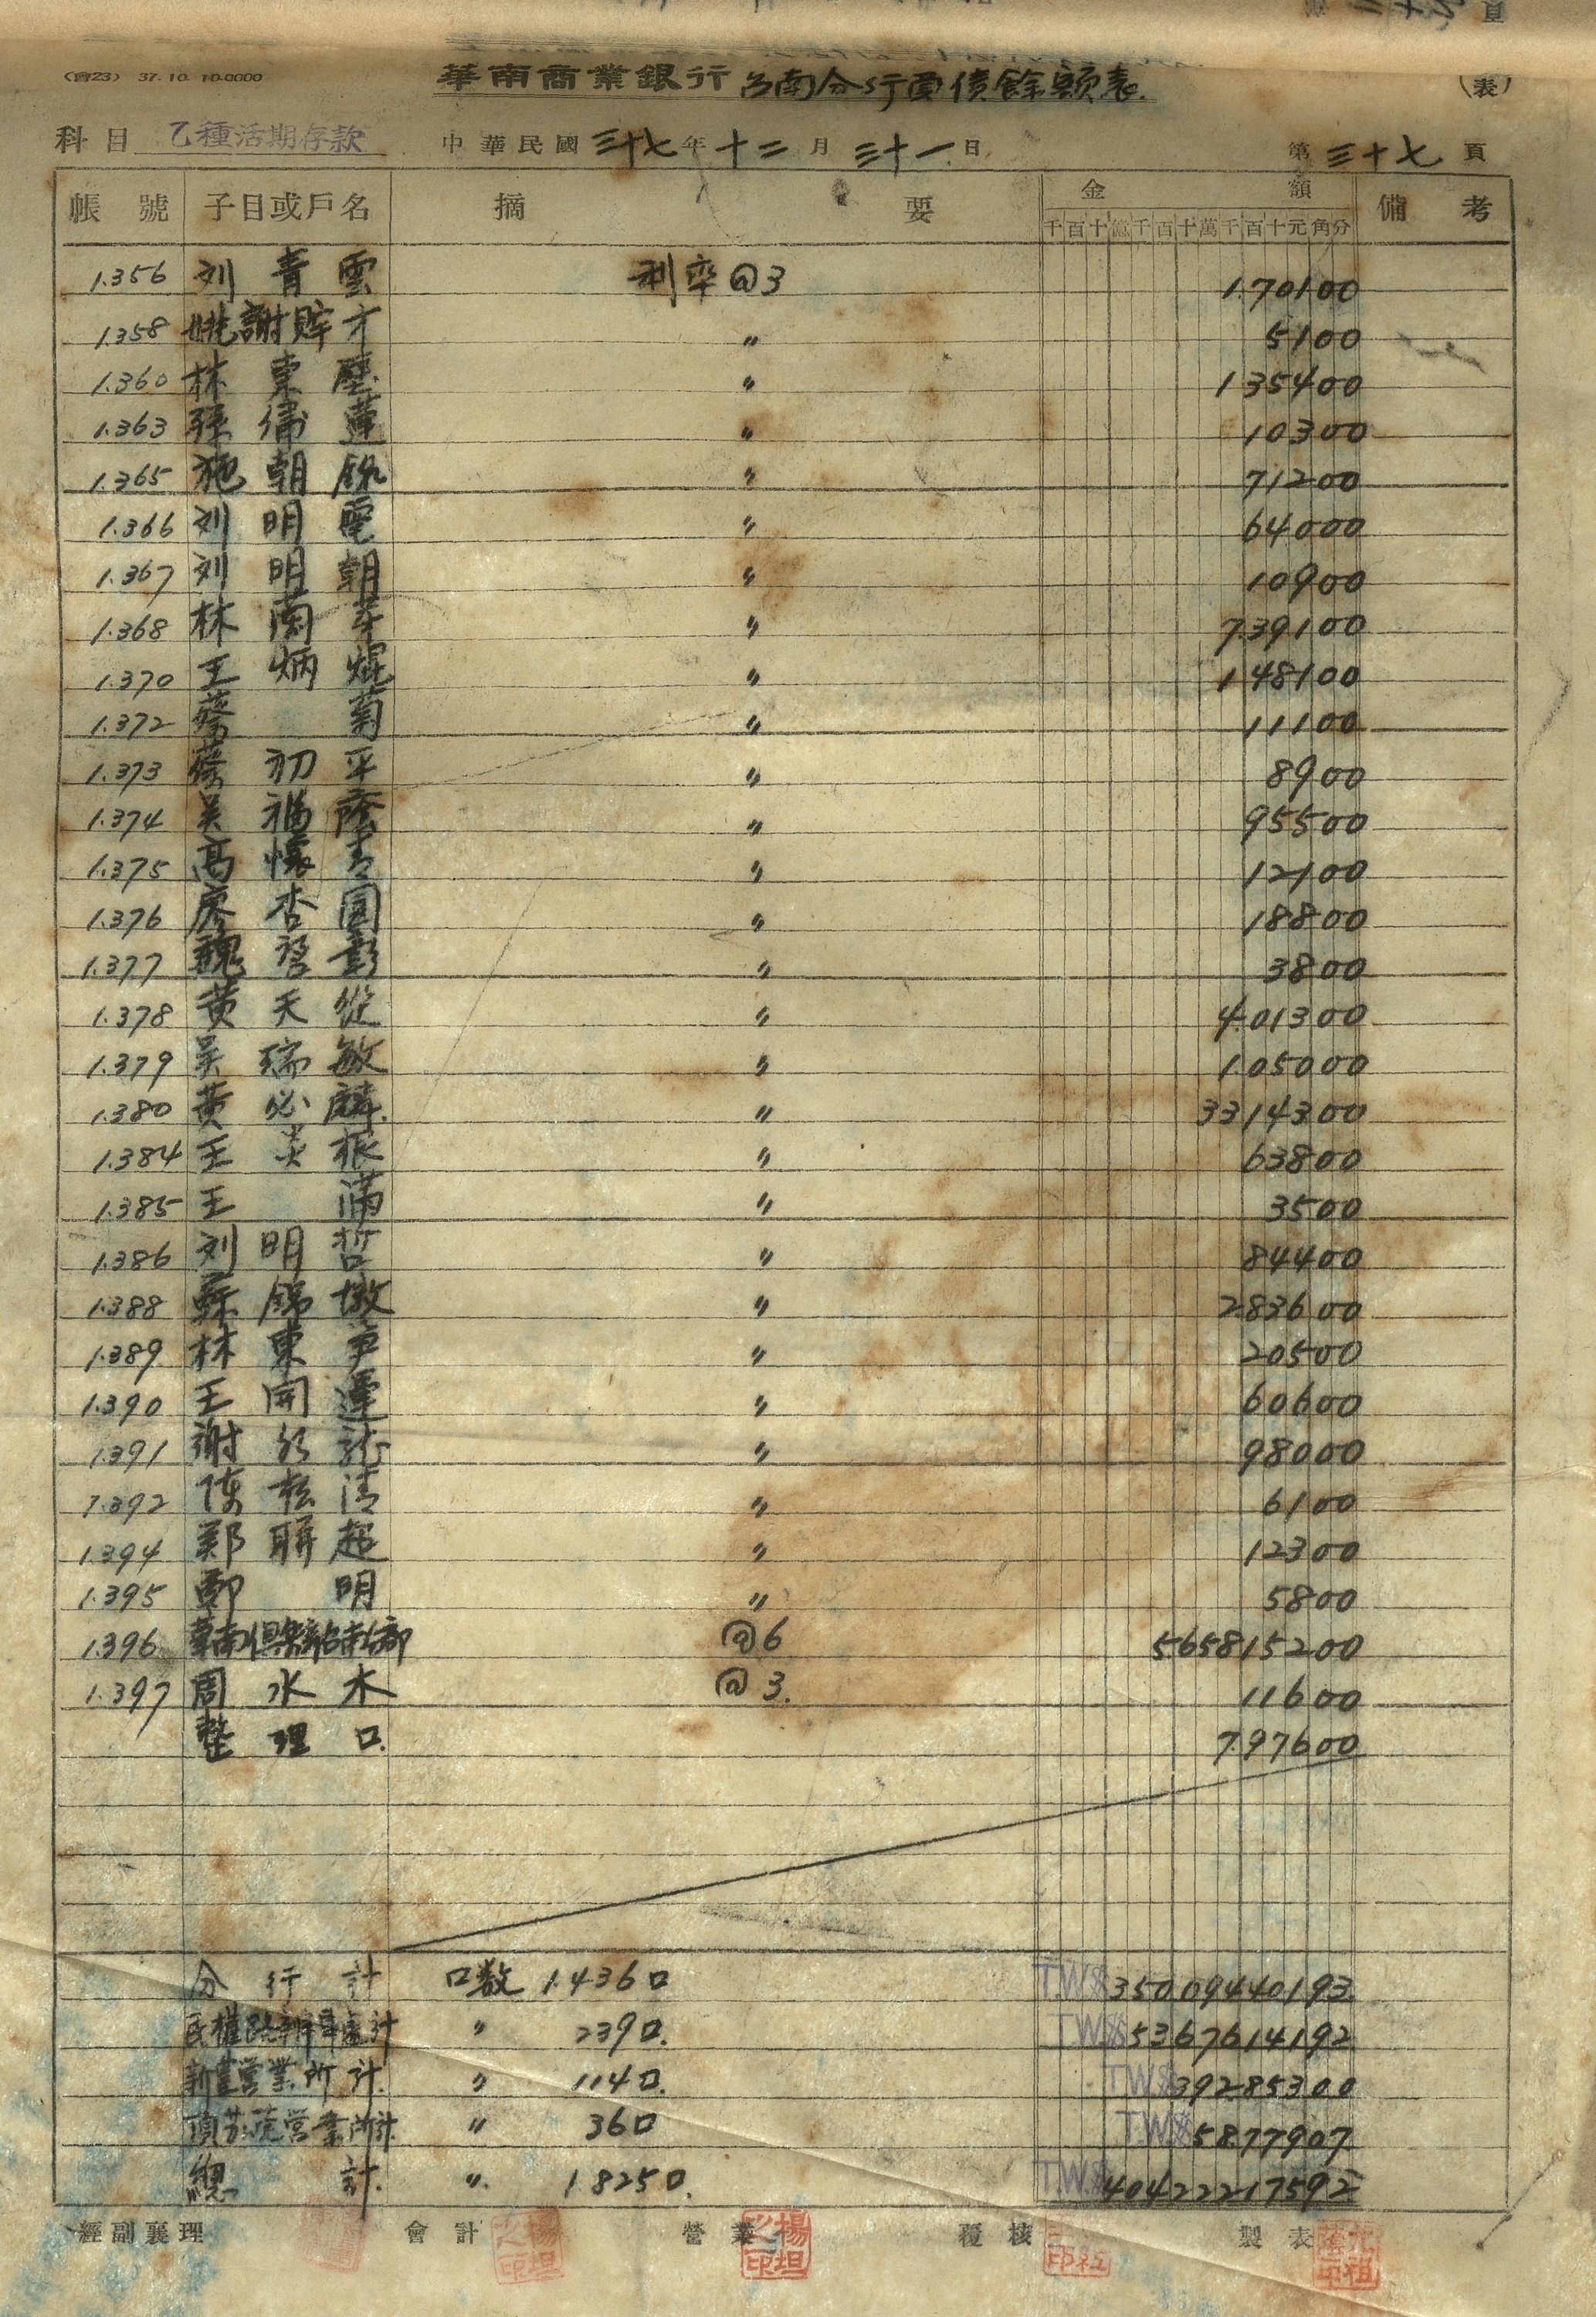 (會23) 37.10.10.0000 華南商業銀行台南分行負債餘額表 (表)
科目 乙種活期存款 中華民國三十七年十二月三十一日 第三十七頁
帳號 子目或戶名 摘要 金額 備考
千百十億千百十萬千百十元角分
1.356 刘青雲 利率@3 1.70100
1.358 姚謝 才 〃 5100
1.360 林東壁 〃 135400
1.363 孫 蓮 〃 10300
1.365 施朝 〃 71200
1.366 刘明電 〃 64000
1.367 刘明朝 〃 10900
1.368 林蘭芽 〃 739100
1.370 王炳焜 〃 148100
1.372 蔡菊 〃 11100
1.373 蔡初平 〃 8900
1.374 吴福蔭 〃 95500
1.375 高懷清 〃 12100
1.376 廖杏圓 〃 18800
1.377 魏啓彰 〃 3800
1.378 黄天從 〃 401300
1.379 吴瑞敏 〃 105000
1.380 黄必麟. 〃 3314300
1.384 王炎根 〃 63800
1.385 王满 〃 3500
1.386 刘明哲 〃 84400
1.388 蘇錦墩 〃 283600
1.389 林東 〃 20500
1.390 王開運 〃 60600
1.391 謝 〃 98000
1.392 陳松清 〃 6100
1.394 鄭聯超 〃 12300
1.395 鄭明 〃 5800
1.396 華南俱樂部台南支部 @6 565815200
1.397 周水木 @3. 11600
整理口. 797600
分行計 口数 1.436口 T.W.$35009440193
民權路辦事處計 〃 239口. T.W.$5367614192
新營營業所計. 〃 114口. T.W.$39285300
頂 營業所計. 〃 36口 T.W.$5877907
總計. 〃. 1.825口. T.W.$40422217592
經副襄理 會計 營業 覆核 製表
楊坦之印 楊坦之印